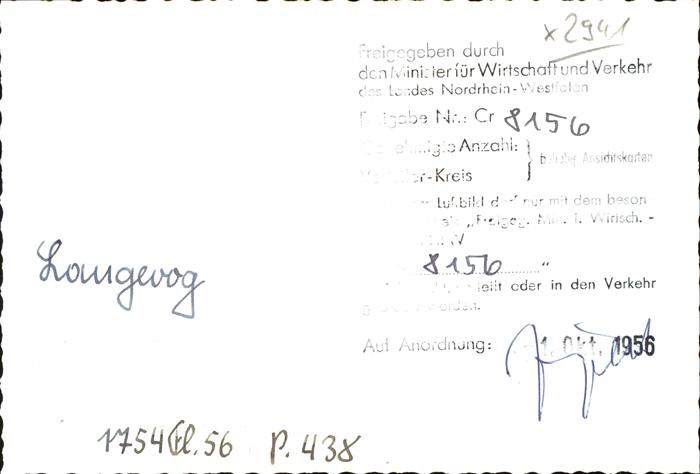 x2941
Freigegeben durch
den Minister für Wirtschaft und Verkehr
des Landes Nordrhein-Westfalen
Freigabe Nr.: Cr 8156
Genehmigte Anzahl: } beliebig Ansichtskarten
Verteiler-Kreis
Luftbild darf nur mit dem beson
„Freigeg. Min. f. Wirtsch. -
8156 “
oder in den Verkehr
werden.
Auf Anordnung: 1. Okt. 1956
Langeoog
1754 56 P. 438